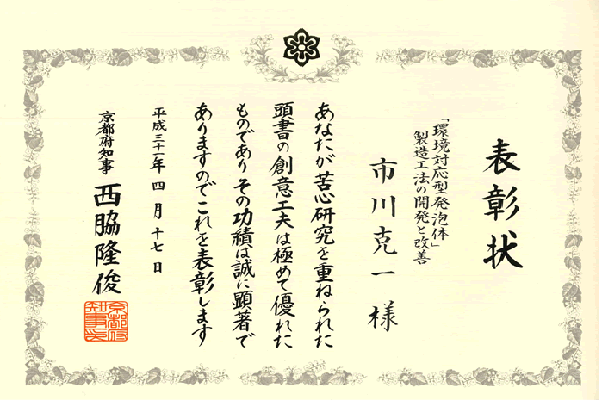 表彰状
「環境対応型発泡体」
製造工法の開発と改善
市川克一様
あなたが苦心研究を重ねられた
頭書の創意工夫は極めて優れた
ものでありその功績は誠に顕著で
ありますのでこれを表彰します
平成三十一年四月十七日
京都府知事 西脇隆俊
京都府
知事之印